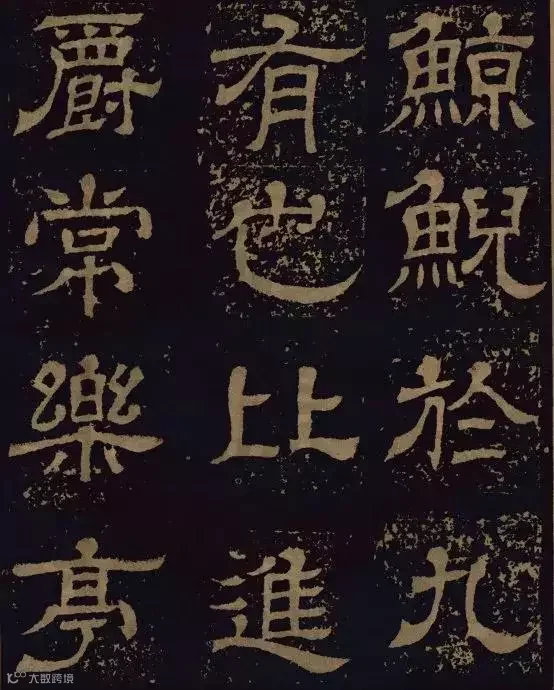 鯨鯢於九
有也比進
爵常樂亭
大数跨境